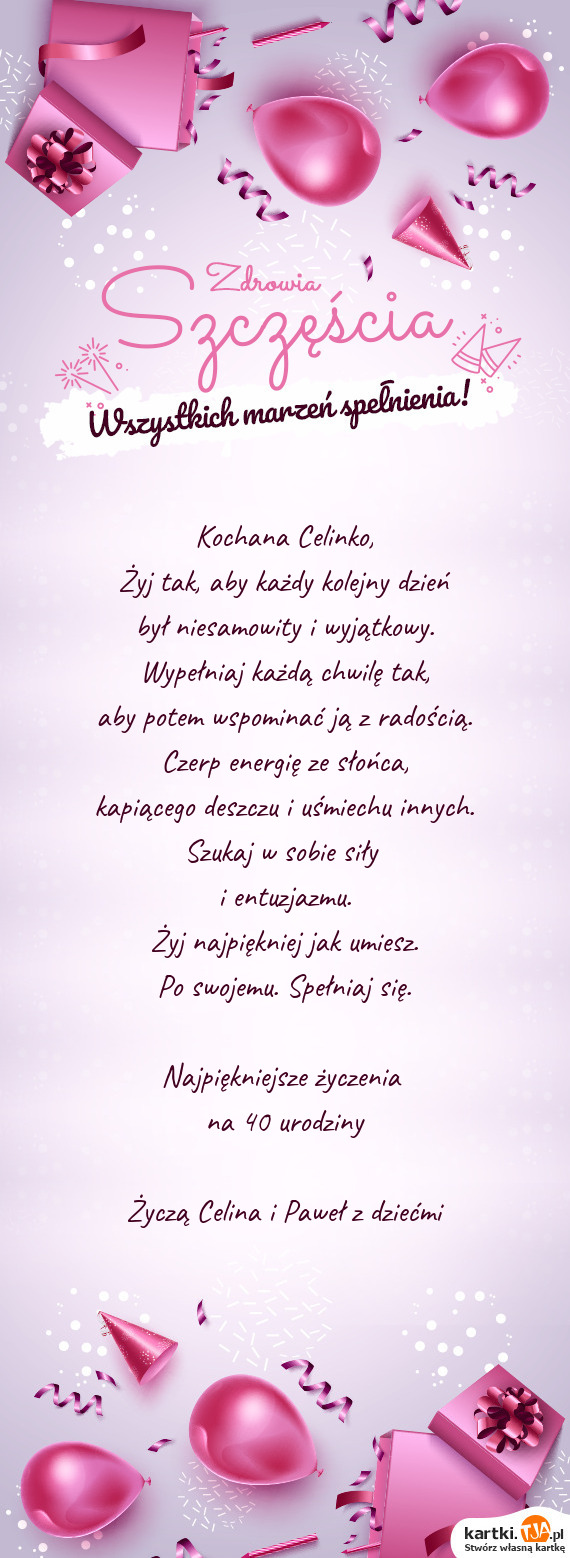 Zdrowia
Szczęścia
Wszystkich marzeń spełnienia!
Kochana Celinko,
Żyj tak, aby każdy kolejny dzień
był niesamowity i wyjątkowy.
Wypełniaj każdą chwilę tak,
aby potem wspominać ją z radością.
Czerp energię ze słońca,
kapiącego deszczu i uśmiechu innych.
Szukaj w sobie siły
i entuzjazmu.
Żyj najpiękniej jak umiesz.
Po swojemu. Spełniaj się.
Najpiękniejsze życzenia
na 40 urodziny
Życzą Celina i Paweł z dziećmi
kartki.TJA.pl
Stwórz własną kartkę